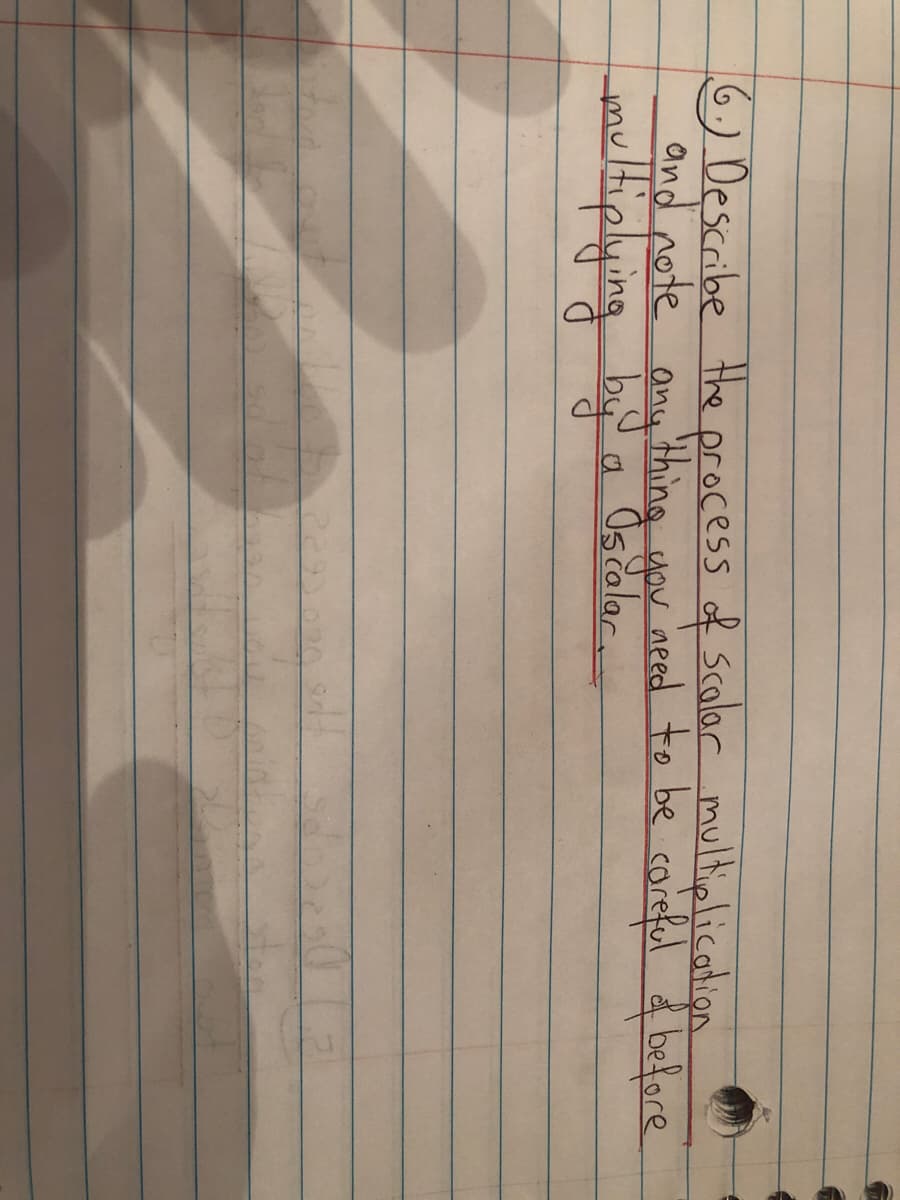 6.) Describe the process of scalar multiplication
and note any thing you need to be careful of before
multiplying by a scalar.